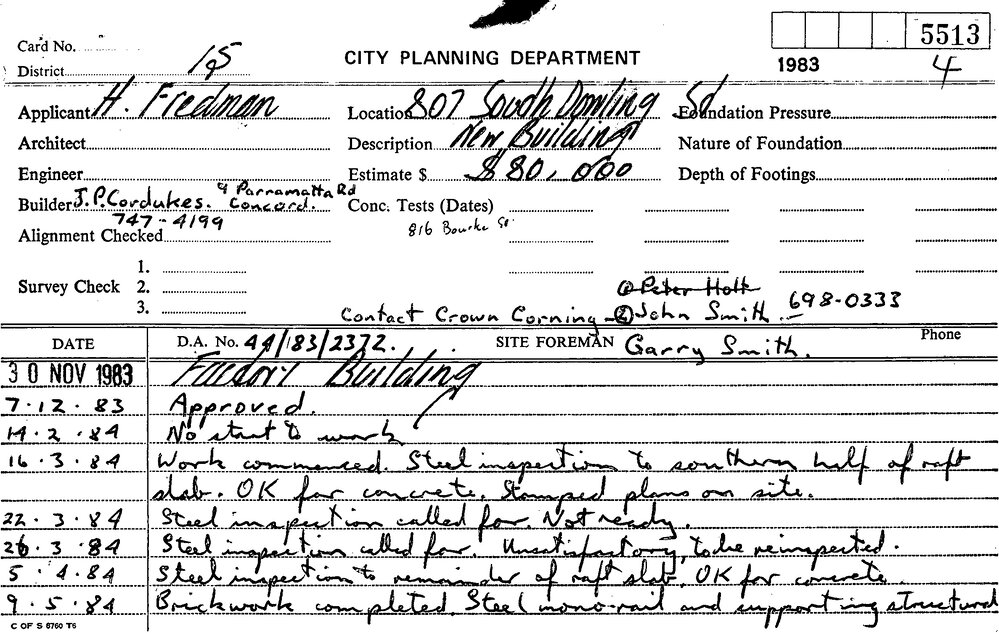 5513
Card No.
CITY PLANNING DEPARTMENT
1983
4
District 15
Applicant H. Fredman
Location 807 South Dowling St
Foundation Pressure
Architect
Description New Building
Nature of Foundation
Engineer
Estimate $ $80,000
Depth of Footings
9 Parramatta Rd
Builder J.P. Cordukes. Concord.
Conc. Tests (Dates)
747-4199
816 Bourke St.
Alignment Checked
1.
Survey Check 2.
3.
① Peter Holt
Contact Crown Corning - ② John Smith. - 698-0333
DATE
D.A. No. 44/83/2372.
SITE FOREMAN Garry Smith.
Phone
30 NOV 1983 Factory Building
7.12.83 Approved.
14.2.84 No start to work
16.3.84 Work commenced. Steel inspection to southern half of raft
slab. OK for concrete. Stamped plans on site.
22.3.84 Steel inspection called for. Not ready.
26.3.84 Steel inspection called for. Unsatisfactory, to be reinspected.
5.4.84 Steel inspection to remainder of raft slab. OK for concrete.
9.5.84 Brickwork completed. Steel mono-rail and supporting structural
C OF S 6760 T6